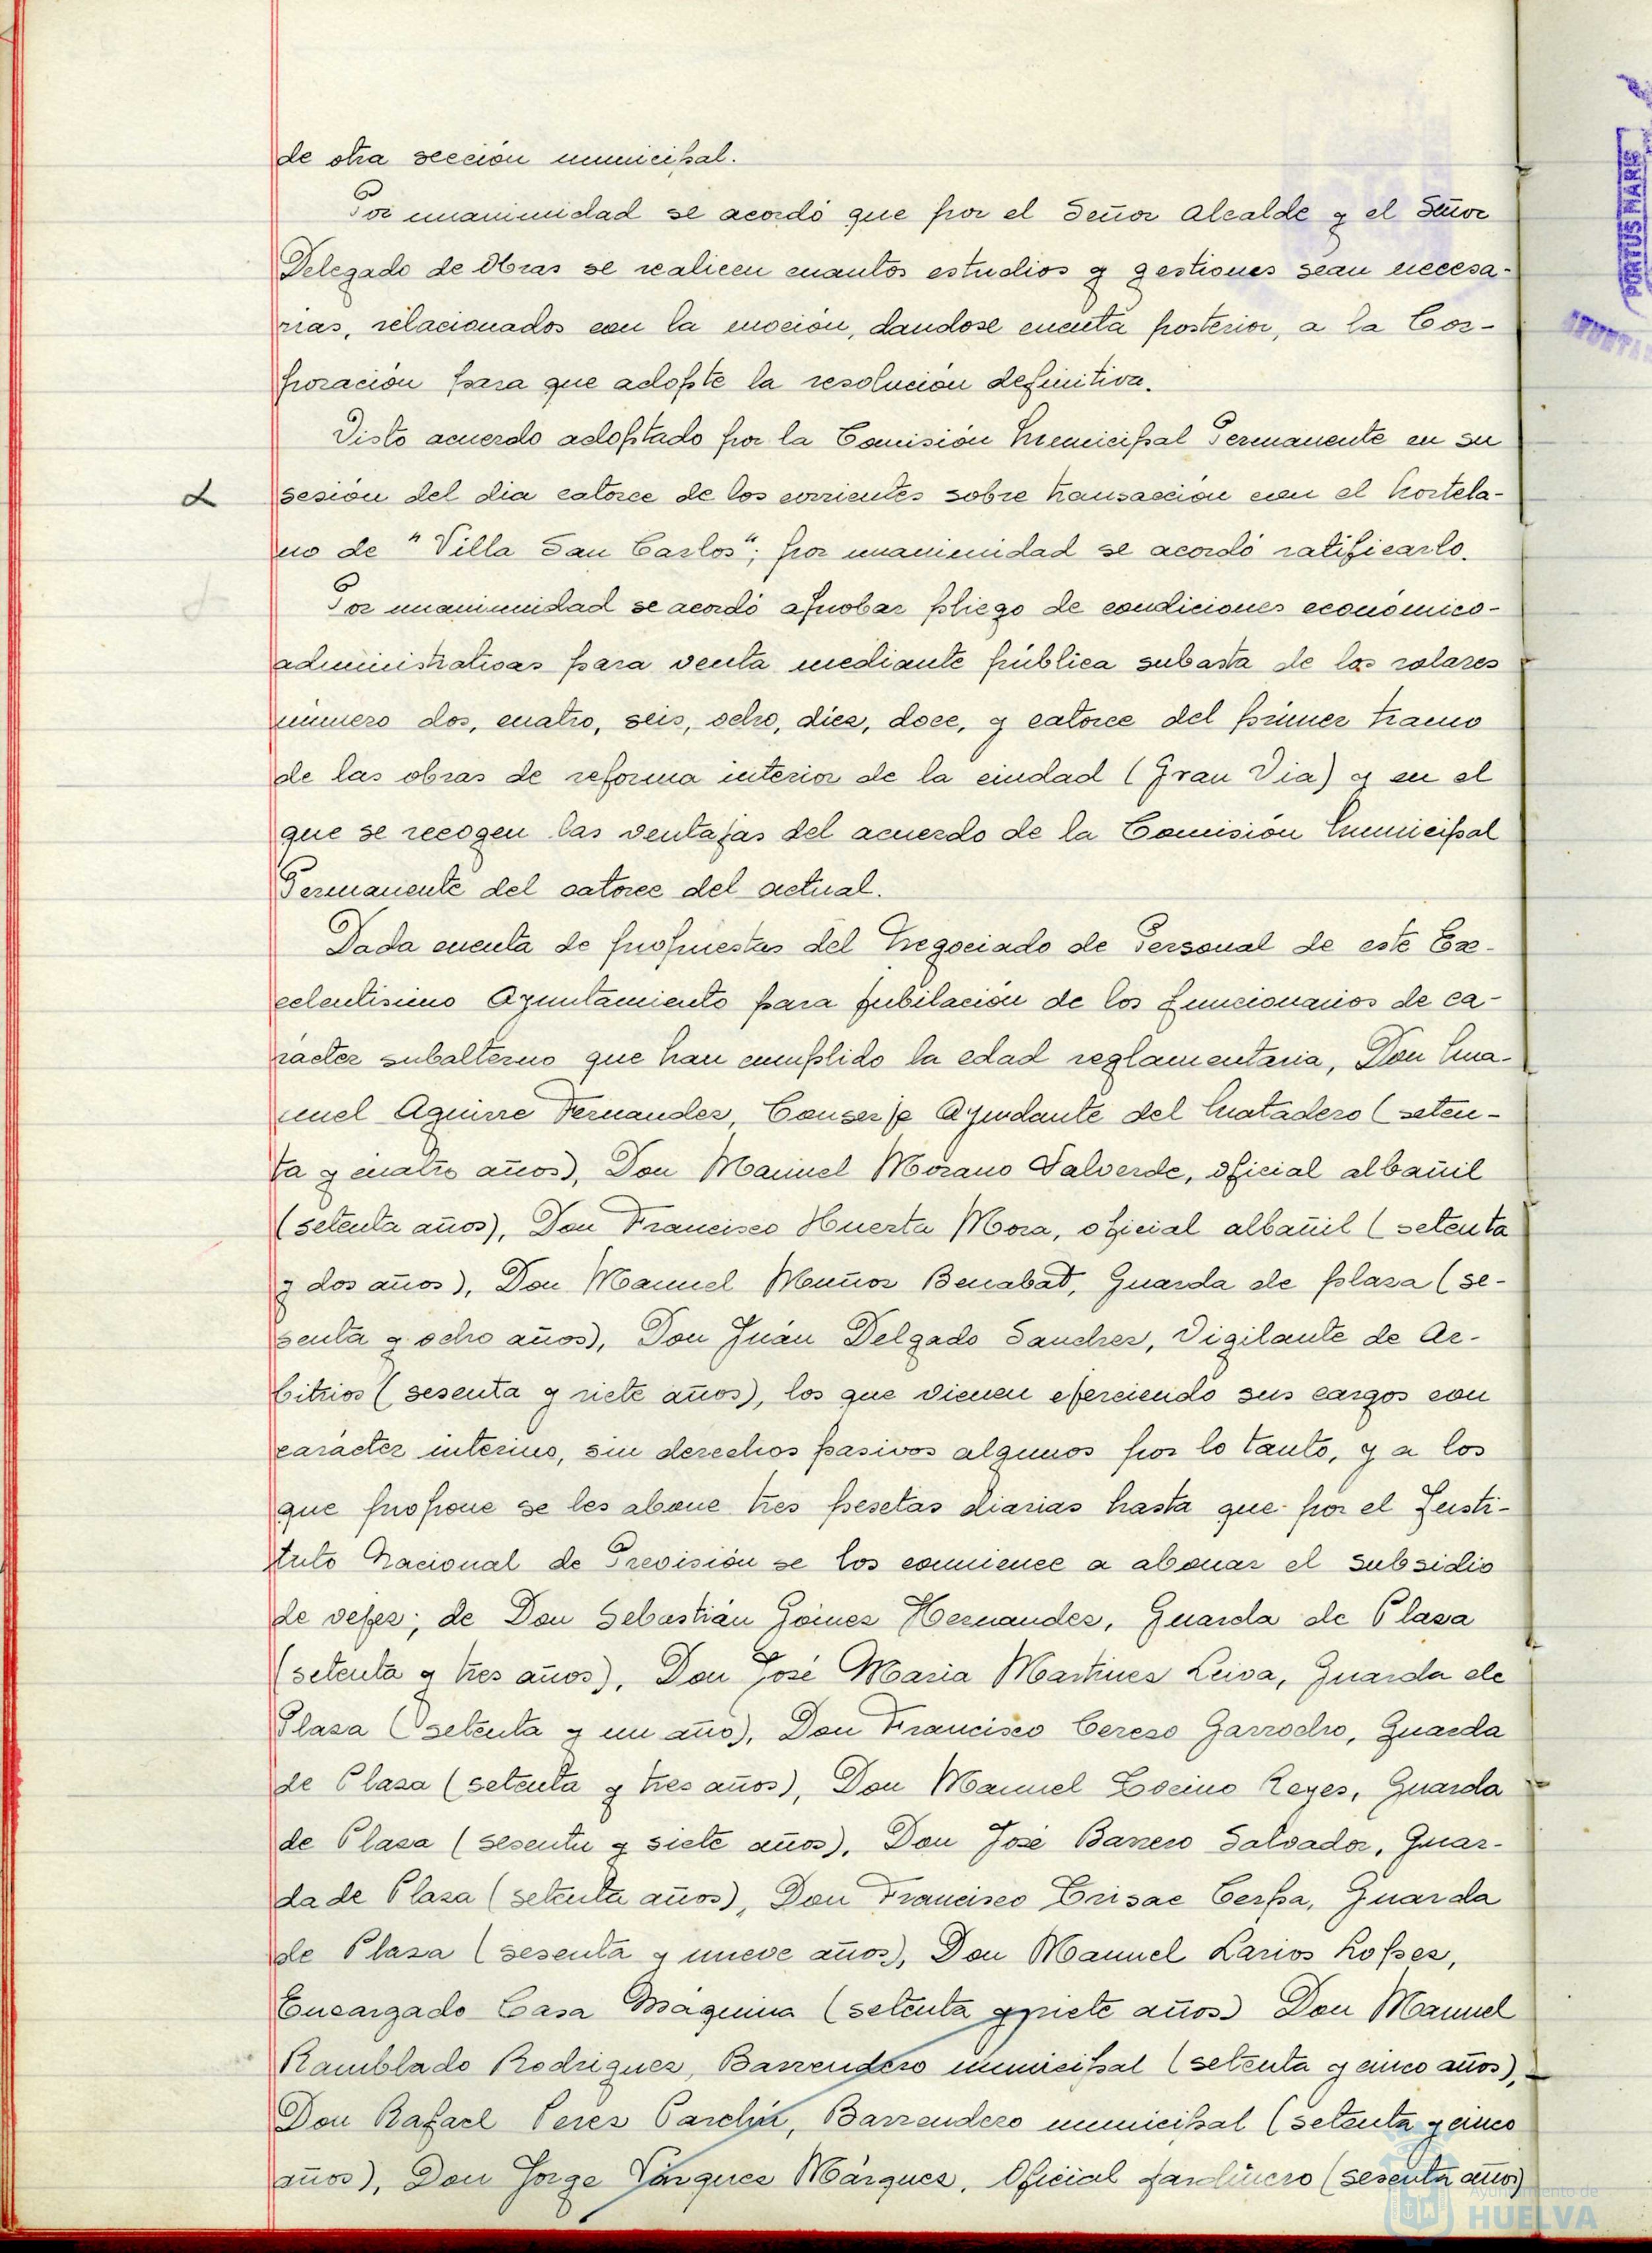 de otra sección municipal.
Por unanimidad se acordó que por el Señor Alcalde y el Señor
Delegado de Obras se realicen cuantos estudios y gestiones sean necesa-
rias, relacionados con la moción, dandose cuenta posterior, a la Cor-
poración para que adopte la resolución definitiva.
Visto acuerdo adoptado por la Comisión Municipal Permanente en su
sesión del dia catorce de los corrientes sobre transacción con el hortela-
no de "Villa San Carlos"; por unanimidad se acordó ratificarlo.
Por unanimidad se acordó aprobar pliego de condiciones económico-
administrativas para venta mediante pública subasta de los solares
número dos, cuatro, seis, ocho, diez, doce, y catorce del primer tramo
de las obras de reforma interior de la ciudad (Gran Via) y en el
que se recogen las ventajas del acuerdo de la Comisión Municipal
Permanente del catorce del actual.
Dada cuenta de propuestas del Negociado de Personal de este Ex-
celentisimo Ayuntamiento para jubilación de los funcionarios de ca-
rácter subalterno que han cumplido la edad reglamentaria, Don Ma-
nuel Aguirre Fernandez, Conserje Ayudante del Matadero (seten-
ta y cuatro años), Don Manuel Morano Valverde, oficial albañil
(setenta años), Don Francisco Huerta Mora, oficial albañil (setenta
y dos años), Don Manuel Muñoz Benabat, Guarda de plaza (se-
senta y ocho años), Don Juán Delgado Sanchez, Vigilante de Ar-
bitrios (sesenta y siete años), los que vienen ejerciendo sus cargos con
carácter interino, sin derechos pasivos algunos por lo tanto, y a los
que propone se les abone tres pesetas diarias hasta que por el Insti-
tuto Nacional de Previsión se los comience a abonar el subsidio
de vejez; de Don Sebastián Gómez Hernandez, Guarda de Plaza
(setenta y tres años), Don José Maria Martinez Leiva, Guarda de
Plaza (setenta y un año), Don Francisco Cerezo Garrocho, Guarda
de Plaza (setenta y tres años), Don Manuel Cocino Reyes, Guarda
de Plaza (sesenta y siete años), Don José Barrero Salvador, Guar-
da de Plaza (setenta años), Don Francisco Crisac Cerpa, Guarda
de Plaza (sesenta y nueve años), Don Manuel Larios Lopez,
Encargado Casa Máquina (setenta y siete años) Don Manuel
Ramblado Rodriguez, Barrendero municipal (setenta y cinco años),
Don Rafael Perez Parchín, Barrendero municipal (setenta y cinco
años), Don Jorge Vázquez Márquez, Oficial jardinero (sesenta años)
PORTUS MARIS
Ayuntamiento de
HUELVA